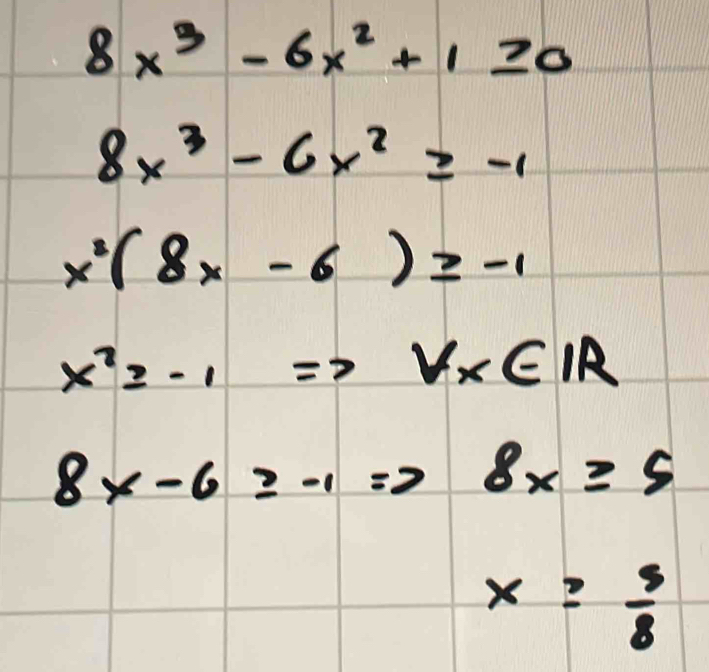 8x³ - 6x² + 1 ≥ 0
8x³ - 6x² ≥ -1
x²(8x - 6) ≥ -1
x² ≥ -1 => ∀x ∈ ℝ
8x - 6 ≥ -1 => 8x ≥ 5
x ≥ 5/8